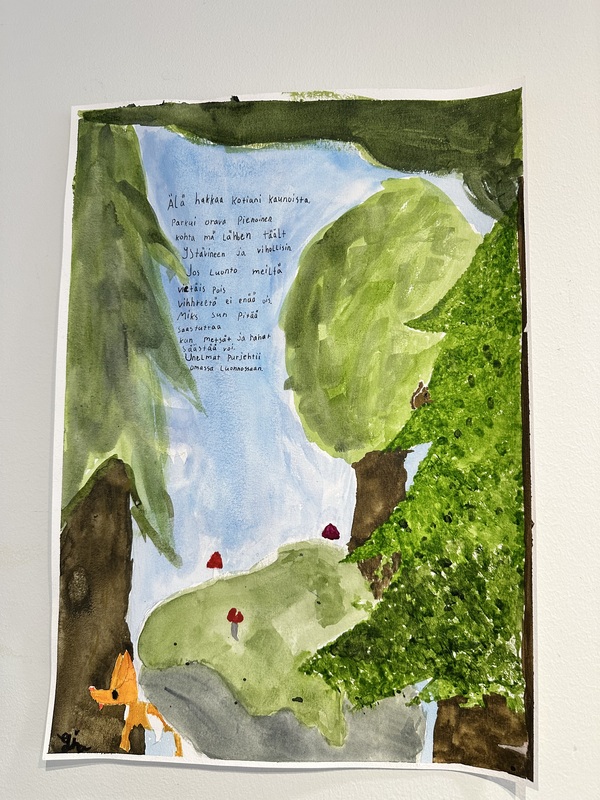 Älä hakkaa kotiani kaunoista.
Parkui orava Pienoinen
kohta mä lähden täält
Ystävineen ja vihollisin
Jos Luonto meiltä
vietäis Pois
vihhreetä ei enää ois
Miks sun pitää
saastuttaa
kun metsät ja rahat
säästää voi.
Unelmat Purjehtii
omassa Luonnossaan.